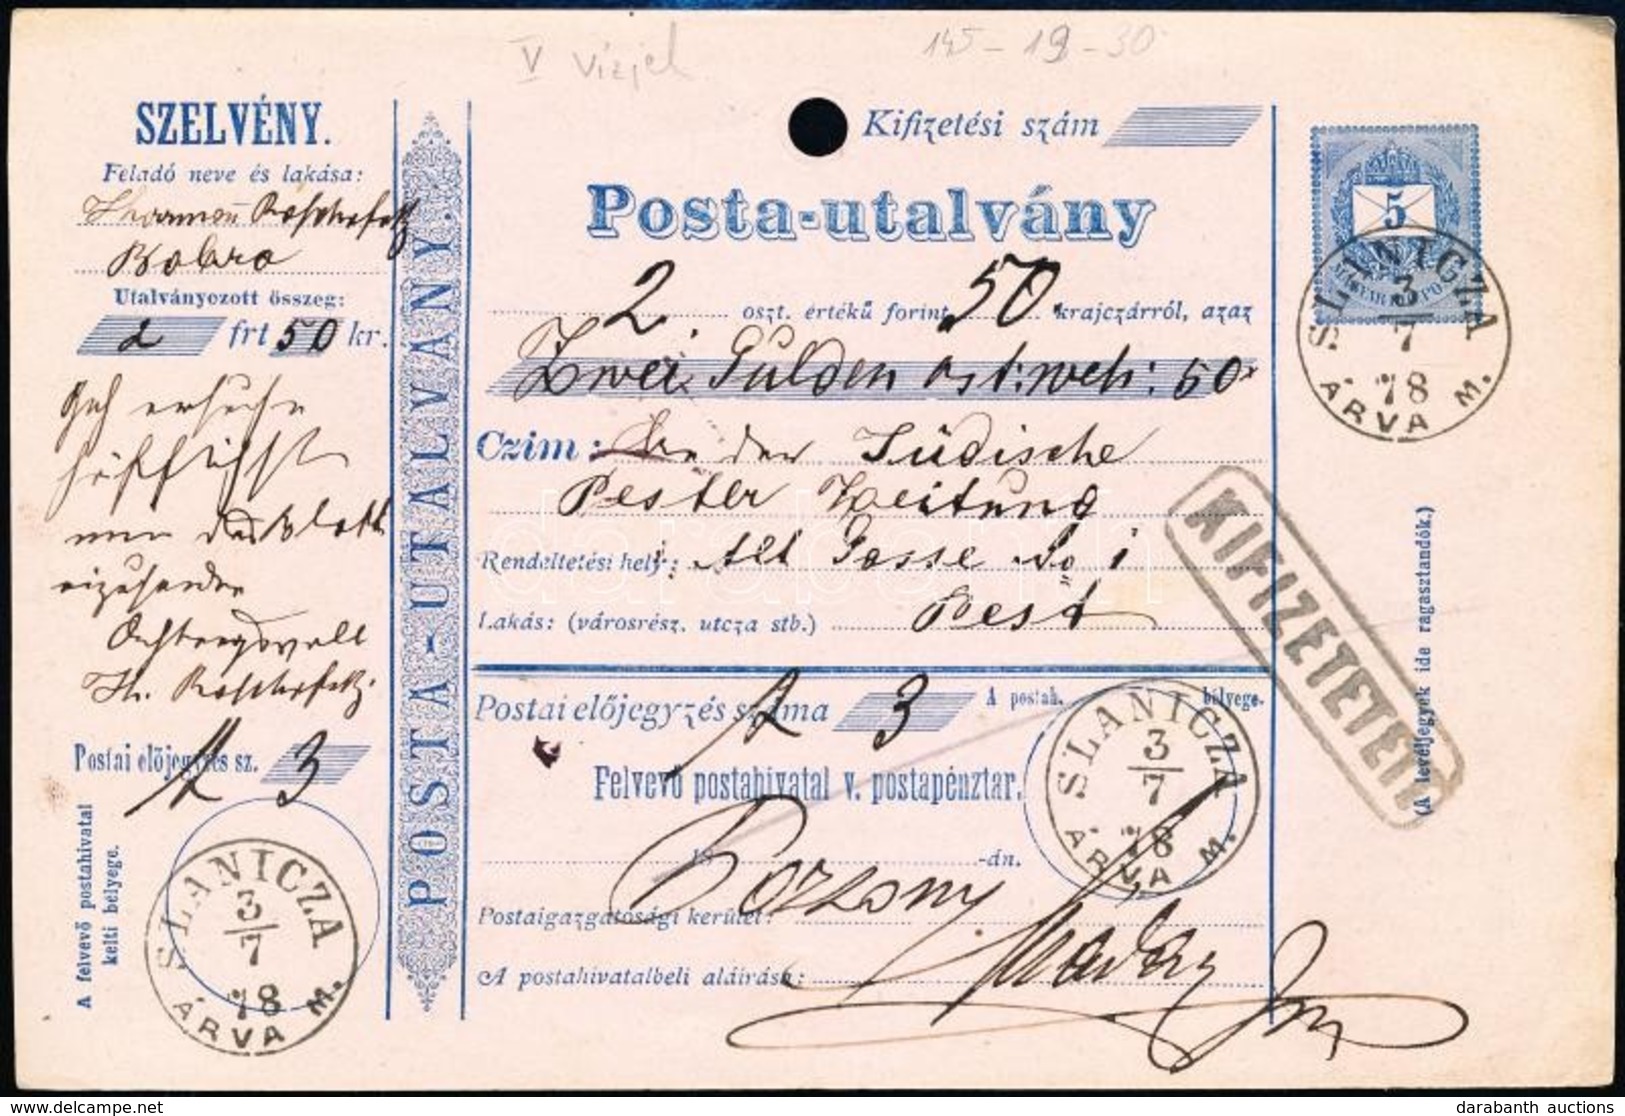 V Vizjel
145 - 19 - 30
SZELVÉNY.
Feladó neve és lakása:
Bobro
Utalványozott összeg:
2 frt 50 kr.
Ich ersuche
höflichst
mir das Blatt
einzusenden
Achtungsvoll
Postai előjegyzés sz. 3
A felvevő postahivatal
kelti bélyege.
SLANICZA
3/7
78
ÁRVA M.
POSTA-UTALVÁNY.
Kifizetési szám
Posta-utalvány
2. oszt. értékű forint 50 krajczárról, azaz
Zwei Gulden öst: weh: 50x
Czim: An der Jüdische
Pester Zeitung
Rendeltetési hely: Alt Gasse No 1
Lakás: (városrész. utcza stb.) Pest
Postai előjegyzés száma 3
A postah. bélyege.
Felvevő postahivatal v. postapénztar.
18 -dn.
SLANICZA
3/7
78
ÁRVA M.
Postaigazgatósági kerület: Pozsony
A postahivatalbeli aláírása:
5
MAGYAR KIR. POSTA
SLANICZA
3/7
78
ÁRVA M.
KIFIZETETETT
(A levéljegyek ide ragasztandók.)
darabanth
darabanth auctions